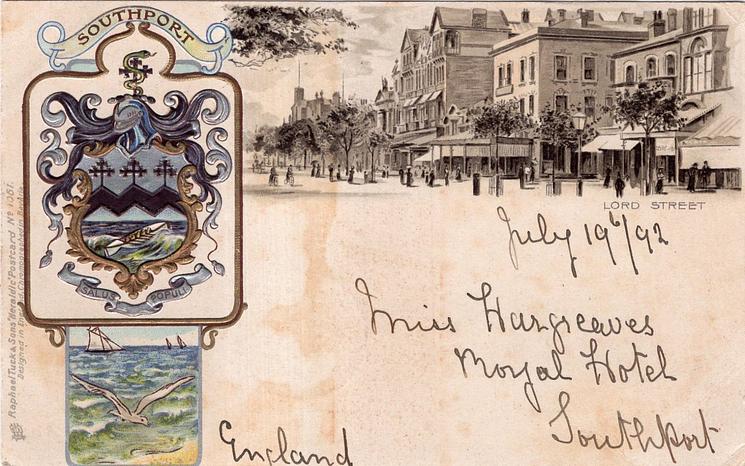 SOUTHPORT
SALUS POPULI
Raphael Tuck & Sons' "Heraldic" Postcard No 1061.
Designed in England, Chromographed in
LORD STREET
July 19th/92
Miss Hargreaves
Hotel
Southport
England